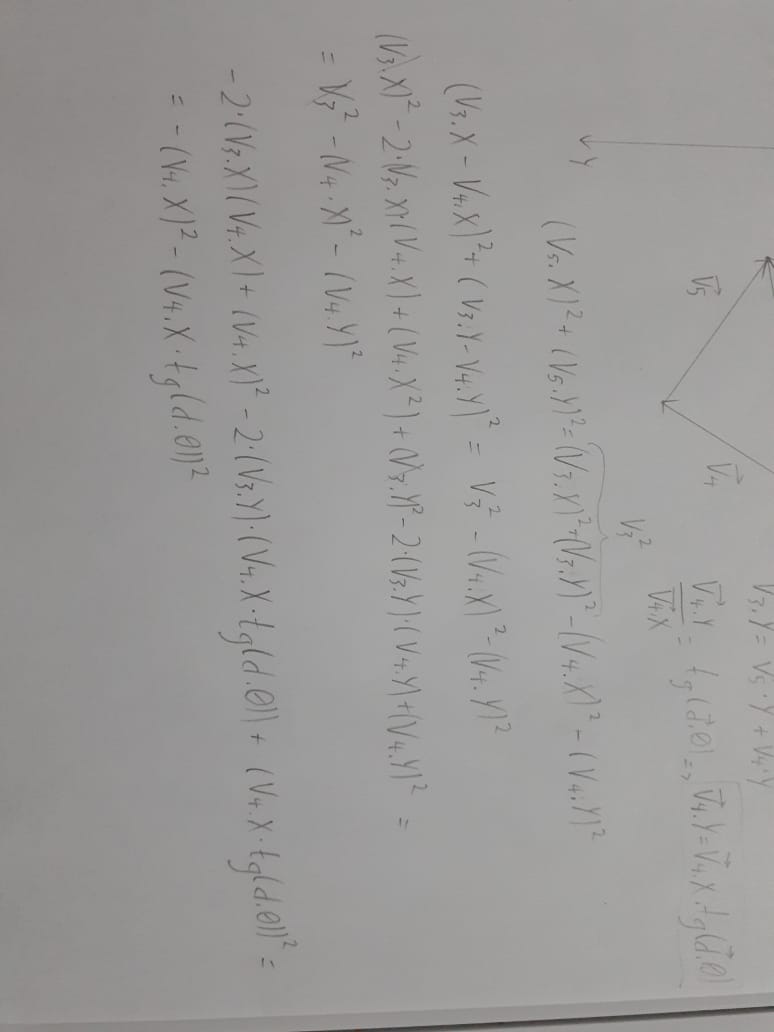 V₃.Y = V₅.Y + V₄.Y
V⃗₅
V⃗₄
V⃗₄.Y / V⃗₄.X = tg(d⃗.θ) => V⃗₄.Y = V⃗₄.X . tg(d⃗.θ)
V₃²
Y
(V₅.X)² + (V₅.Y)² = (V₃.X)² + (V₃.Y)² - (V₄.X)² - (V₄.Y)²
(V₃.X - V₄.X)² + (V₃.Y - V₄.Y)² = V₃² - (V₄.X)² - (V₄.Y)²
(V₃.X)² - 2·(V₃.X)·(V₄.X) + (V₄.X²) + (V₃.Y)² - 2·(V₃.Y)·(V₄.Y) + (V₄.Y)² =
= V₃² - (V₄.X)² - (V₄.Y)²
-2·(V₃.X)(V₄.X) + (V₄.X)² - 2·(V₃.Y)·(V₄.X·tg(d.θ)) + (V₄.X·tg(d.θ))² =
= -(V₄.X)² - (V₄.X·tg(d.θ))²